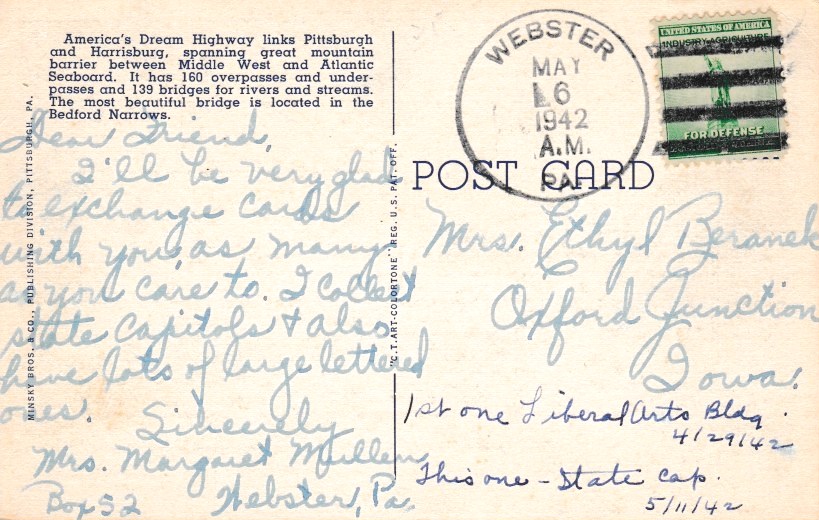 America's Dream Highway links Pittsburgh
and Harrisburg, spanning great mountain
barrier between Middle West and Atlantic
Seaboard. It has 160 overpasses and under-
passes and 139 bridges for rivers and streams.
The most beautiful bridge is located in the
Bedford Narrows.
Dear Friend,
I'll be very glad
to exchange cards
with you, as many
as you care to. I collect
state capitols & also
have lots of large lettered
ones.
Sincerely
Mrs. Margaret Mullen
Box 52 Webster, Pa.
MINSKY BROS. & CO., PUBLISHING DIVISION, PITTSBURGH, PA.
"C.T. ART-COLORTONE" REG. U.S. PAT. OFF.
WEBSTER
MAY
6
1942
A.M.
PA.
UNITED STATES OF AMERICA
INDUSTRY-AGRICULTURE
FOR DEFENSE
POST CARD
Mrs. Ethyl Beranek
Oxford Junction
Iowa.
1st one Liberal Arts Bldg.
4/29/42
This one - State cap.
5/11/42